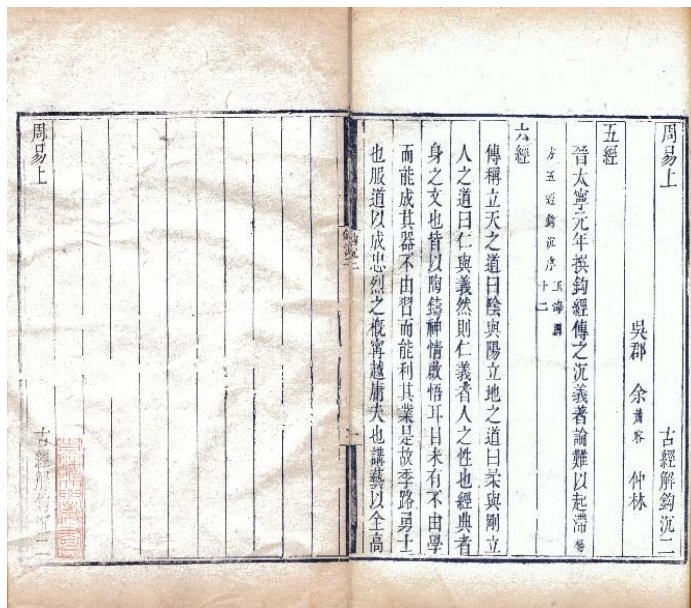 周易上 古經解鈎沉二
吳郡 余蕭客 仲林
五經
晉太寧元年撰鈎經傳之沉義著論難以起滯楊
方五經鈎沉序玉海四十二
六經
傳稱立天之道曰陰與陽立地之道曰柔與剛立
人之道曰仁與義然則仁義者人之性也經典者
身之文也皆以陶鑄神情啟悟耳目未有不由學
而能成其器不由習而能利其業是故季路勇士
也服道以成忠烈之概甯越庸夫也講藝以全高
一
周易上 古經解鈎沉二